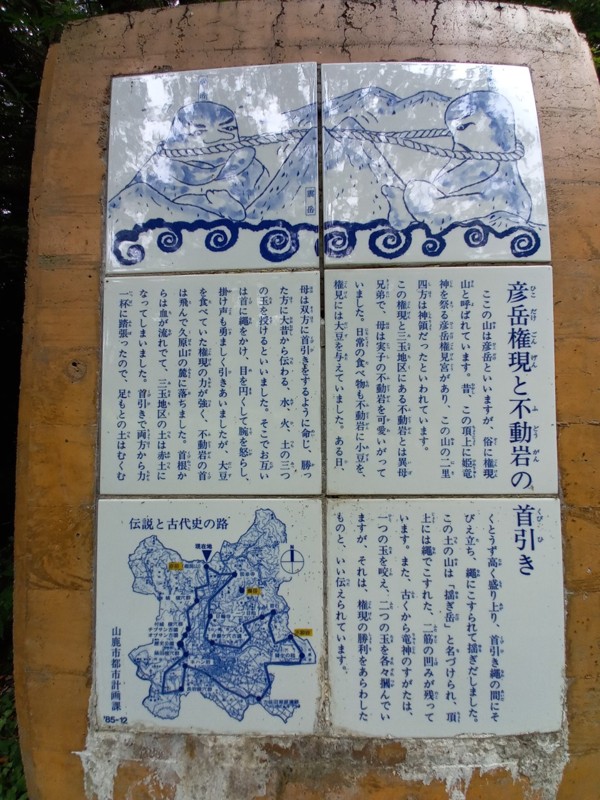 彦岳権現と不動岩の首引き
ここの山は彦岳といいますが、俗に権現
山と呼ばれています。昔、この頂上に姫竜
神を祭る彦岳権現宮があり、この山の二里
四方は神領だったといわれています。
この権現と三玉地区にある不動岩とは異母
兄弟で、母は実子の不動岩を可愛いがって
いました。日常の食べ物も不動岩に小豆を、
権見には大豆を与えていました。ある日、
母は双方に首引きをするように命じ、勝っ
た方に大昔から伝わる、水、火、土の三つ
の玉を授けるといいました。そこでお互い
は首に縄をかけ、目を円くして腕を怒らし、
掛け声も勇ましく引きあいましたが、大豆
を食べていた権現の力が強く、不動岩の首
は飛んで久原山の麓に落ちました。首根か
らは血が流れでて、三玉地区の土は赤土に
なってしまいました。首引きで両方から力
一杯に踏張ったので、足もとの土はむくむ
くとうず高く盛り上り、首引き縄の間にそ
びえ立ち、縄にこすられて揺ぎだしました。
この土の山は「揺ぎ岳」と名づけられ、頂
上には縄でこすれた、二筋の凹みが残って
います。また、古くから竜神のすがたは、
一つの玉を咬え、二つの玉を各々摑んでい
ますが、それは、権現の勝利をあらわした
ものと、いい伝えられています。
伝説と古代史の路
現在地
山鹿市都市計画課
'85-12